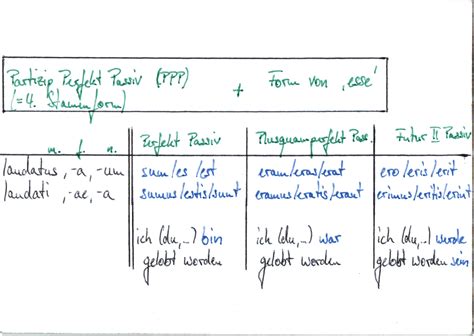 Partizip Perfekt Passiv (PPP) + Form von 'esse'
(=4. Stammform)
m. f. n. Perfekt Passiv Plusquamperfekt Pass. Futur II Passiv
laudatus, -a, -um sum/es/est eram/eras/erat ero/eris/erit
laudati, -ae, -a sumus/estis/sunt eramus/eratis/erant erimus/eritis/erint
ich (du,...) bin ich (du,...) war ich (du,...) werde
gelobt worden gelobt worden gelobt worden sein